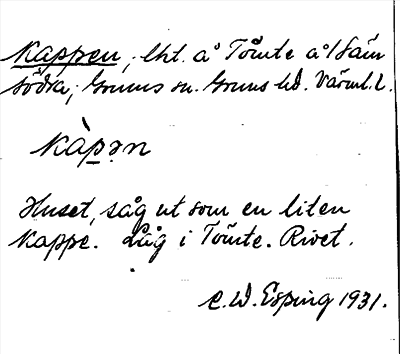 Kappen, lht. å Tomte å Säm
södra, Grums sn. Grums hd. Värml. l.
kàpən
Huset, såg ut som en liten
kappe. Låg i Tomte. Rivet.
C. W. Esping 1931.